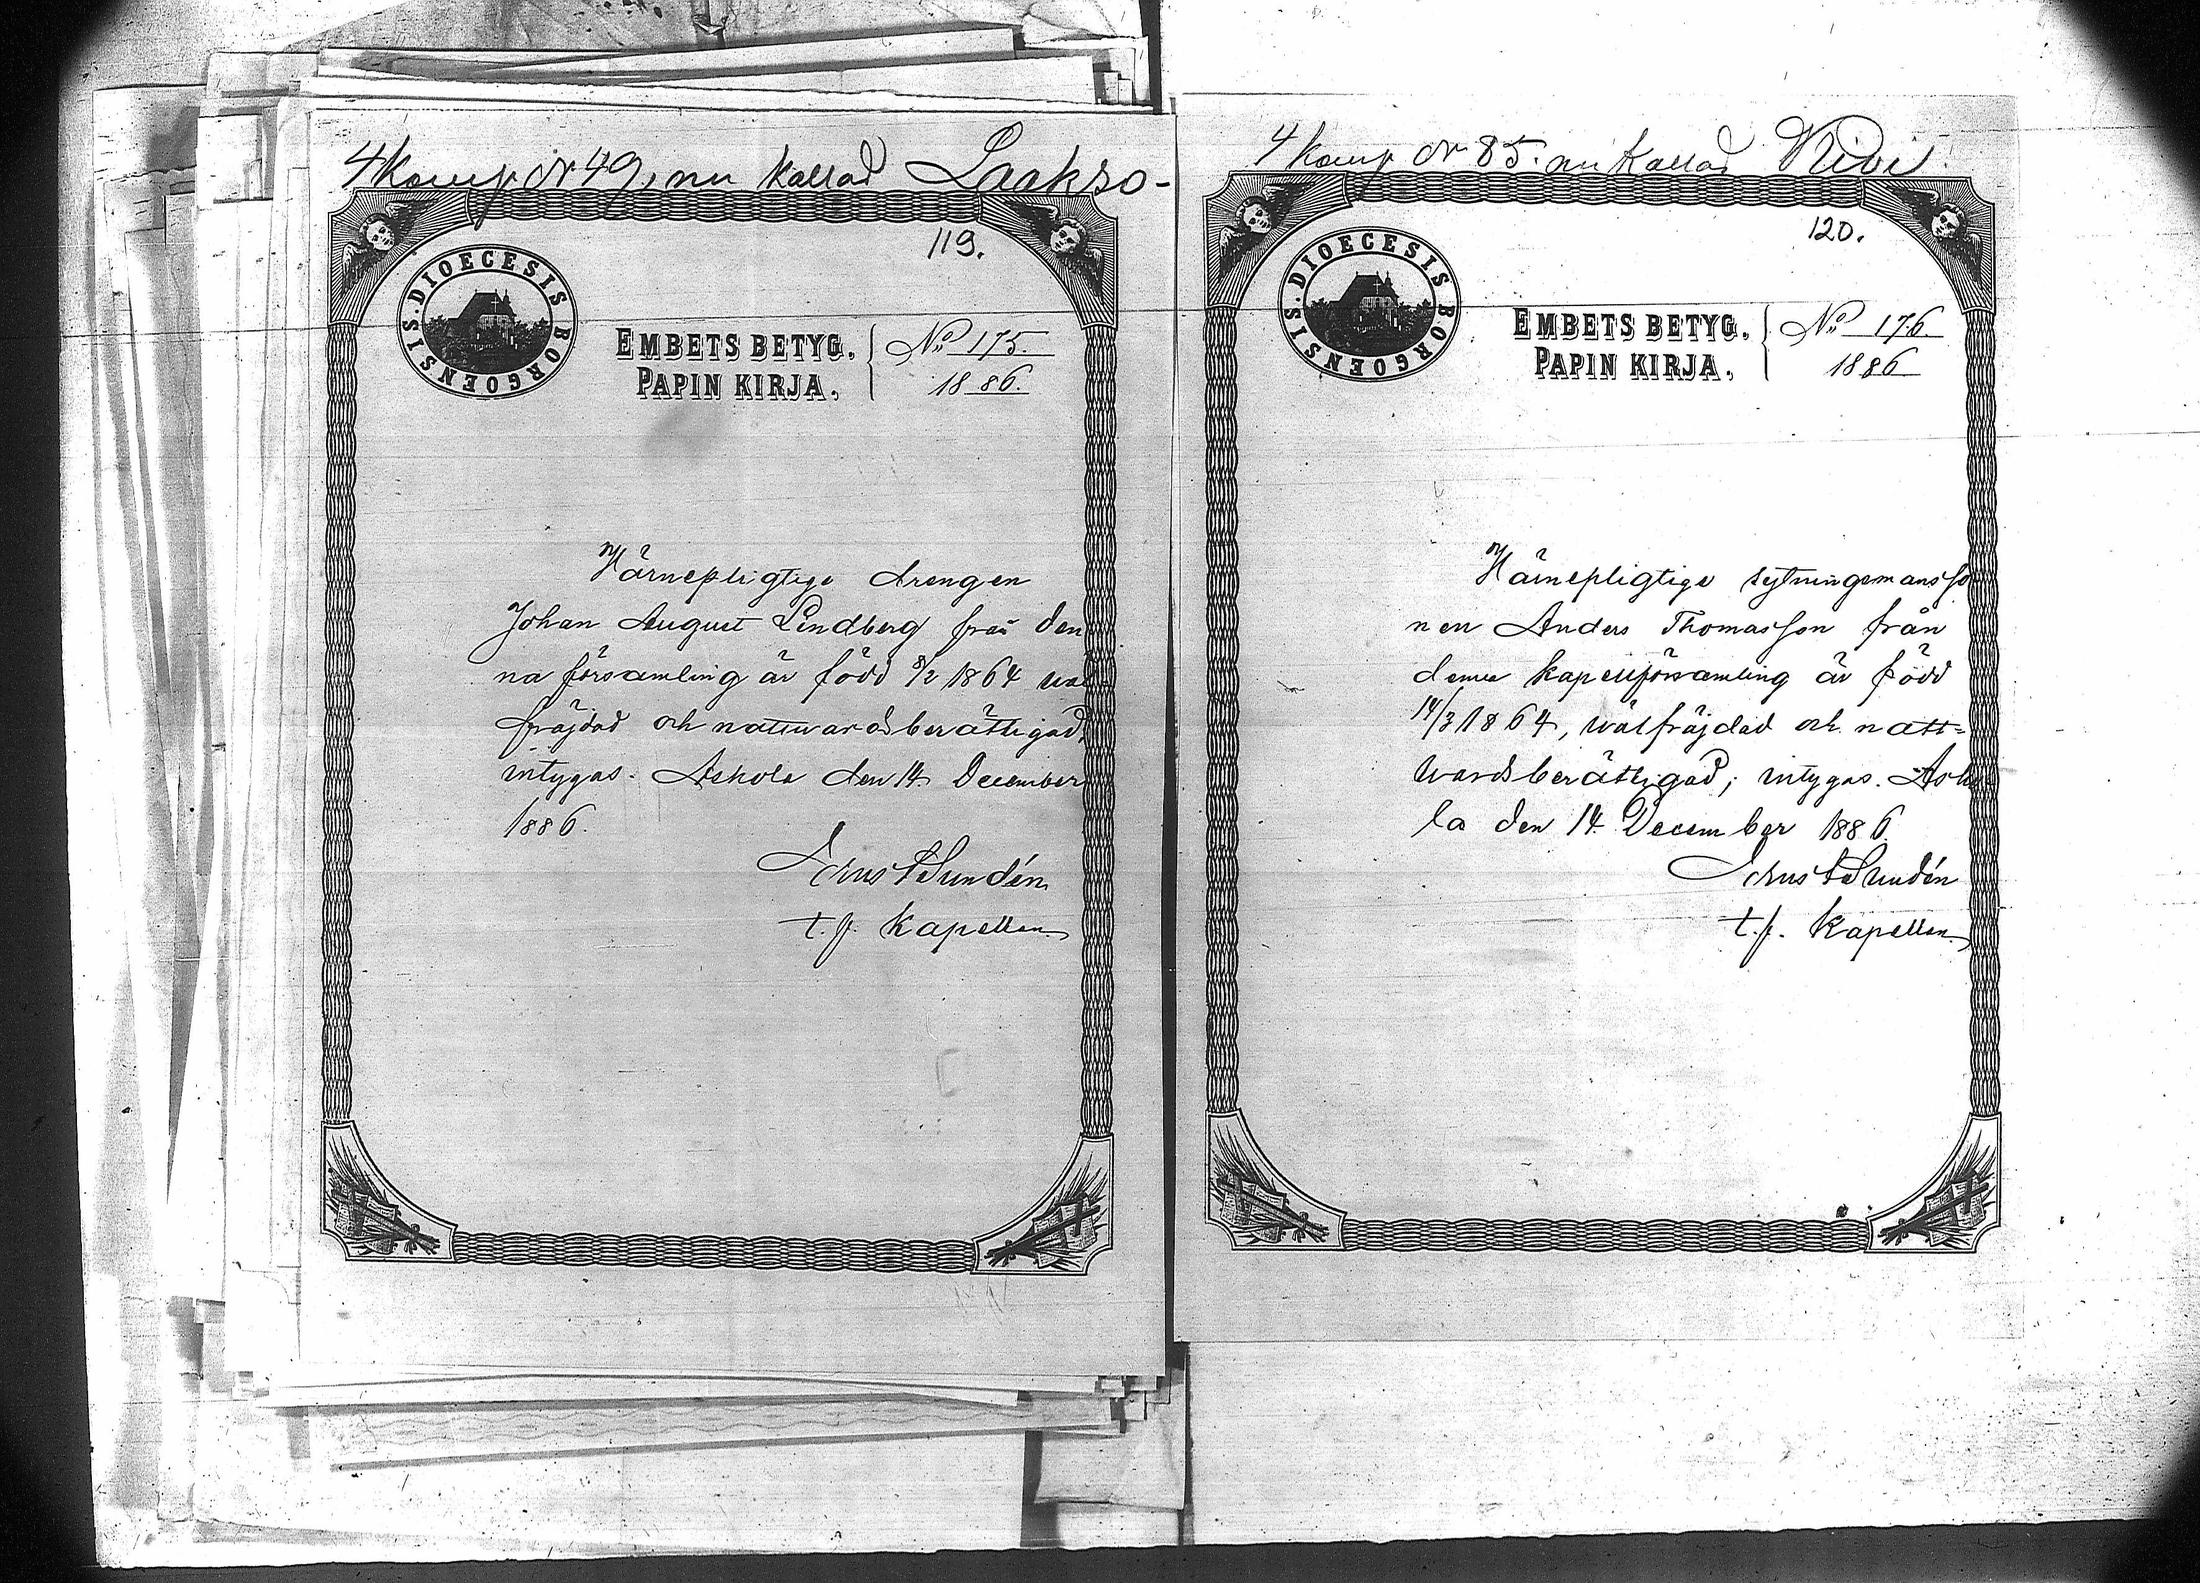 4 Komp. Nr 49, nu kallad Laakso-
119.
DIOECESIS BORGOENSIS.
EMBETS BETYG.
PAPIN KIRJA.
No 175.
1886.
Wärnepligtige drengen
Johan August Lindberg från den
na församling är född 8/2 1864 wäl
fräjdad och nattwardsberättigad,
intygas. Askola den 14. December
1886.
Ernst Sundén
t.f. Kapellan.
4 Komp Nr 85. nu kallad Kivi.
120.
DIOECESIS BORGOENSIS.
EMBETS BETYG.
PAPIN KIRJA.
No 176
1886
Wärnepligtige sytningsmansso
nen Anders Thomasson från
denna kapellförsamling är född
14/3 1864, wälfräjdad och natt=
wardsberättigad; intygas. Asko
la den 14. December 1886.
Ernst Sundén
t.f. Kapellan.